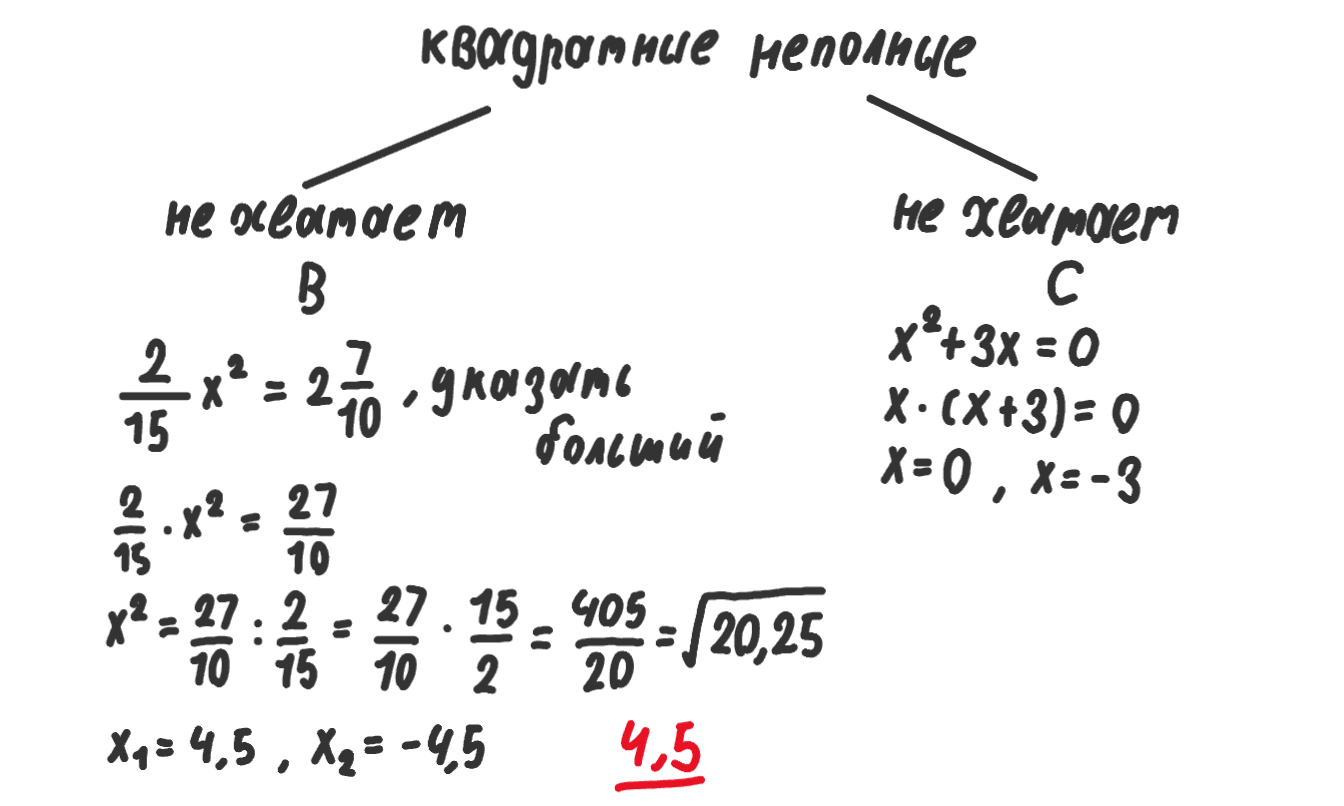 квадратные неполные
не хватает
B
2/15 x² = 2 7/10, указать
больший
2/15 · x² = 27/10
x² = 27/10 : 2/15 = 27/10 · 15/2 = 405/20 = √20,25
x₁ = 4,5 , x₂ = -4,5
4,5
не хватает
C
x² + 3x = 0
x · (x + 3) = 0
x = 0 , x = -3